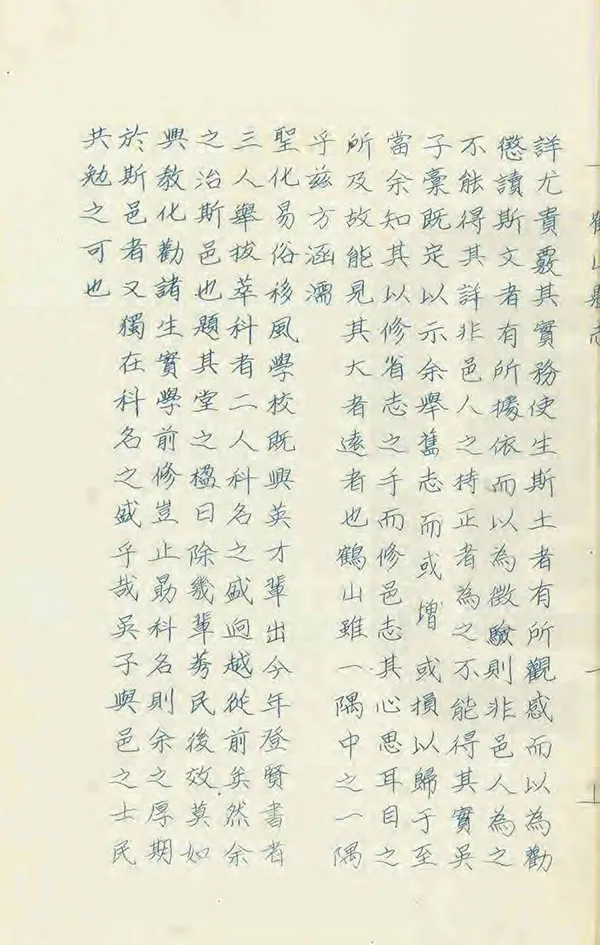 鶴山縣志
詳尤貴覈其實務使生斯土者有所觀感而以為勸
懲讀斯文者有所據依而以為徵驗則非邑人為之
不能得其詳非邑人之持正者為之不能得其實吳
子稾既定以示余舉舊志而或增或損以歸于至
當余知其以修省志之手而修邑志其心思耳目之
所及故能見其大者遠者也鶴山雖一隅中之一隅
乎茲方涵濡
聖化易俗移風學校既興英才輩出今年登賢書者
三人舉拔萃科者二人科名之盛逈越從前矣然余
之治斯邑也題其堂之楹曰除幾輩莠民後效莫如
興教化勸諸生實學前修豈止勗科名則余之厚期
於斯邑者又獨在科名之盛乎哉吳子與邑之士民
共勉之可也